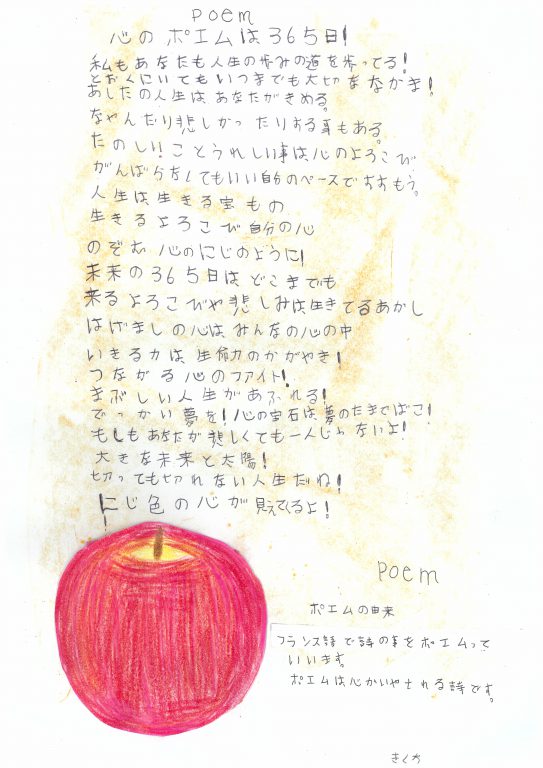 poem
心のポエムは365日!
私もあなたも人生の歩みの道を歩ってる!
とおくにいてもいつまでも大切ななかま!
あしたの人生はあなたがきめる。
なやんだり悲しかったりする事もある。
たのしい!ことうれしい事は心のよろこび
がんばらなくてもいい自分のペースですすもう。
人生は生きる宝もの
生きるよろこび自分の心
のぞむ心のにじのように!
未来の365日はどこまでも
来るよろこびや悲しみは生きてるあかし
はげましの心はみんなの心の中
いきる力は生命力のかがやき!
つながる心のファイト!
まぶしい人生があふれる!
でっかい夢を!心の宝石は夢のたまてばこ!
もしもあなたが悲しくても一人じゃないよ!
大きな未来と太陽!
切っても切れない人生だね!
にじ色の心が見えてくるよ!
poem
ポエムの由来
フランス語で詩の事をポエムって
いいます。
ポエムは心がいやされる詩です。